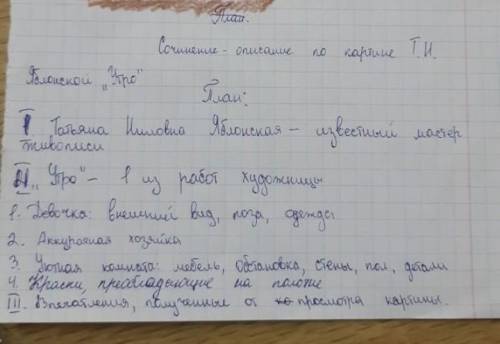 План.
Сочинение - описание по картине Т.Н.
Яблонской "Утро"
План:
I Татьяна Ниловна Яблонская - известный мастер
живописи
II "Утро" - 1 из работ художницы
1. Девочка: внешний вид, поза, одежда
2. Аккуратная хозяйка
3. Уютная комната: мебель, обстановка, стены, пол, детали
4. Краски, преобладающие на полотне
III. Впечатления, полученные от просмотра картины.